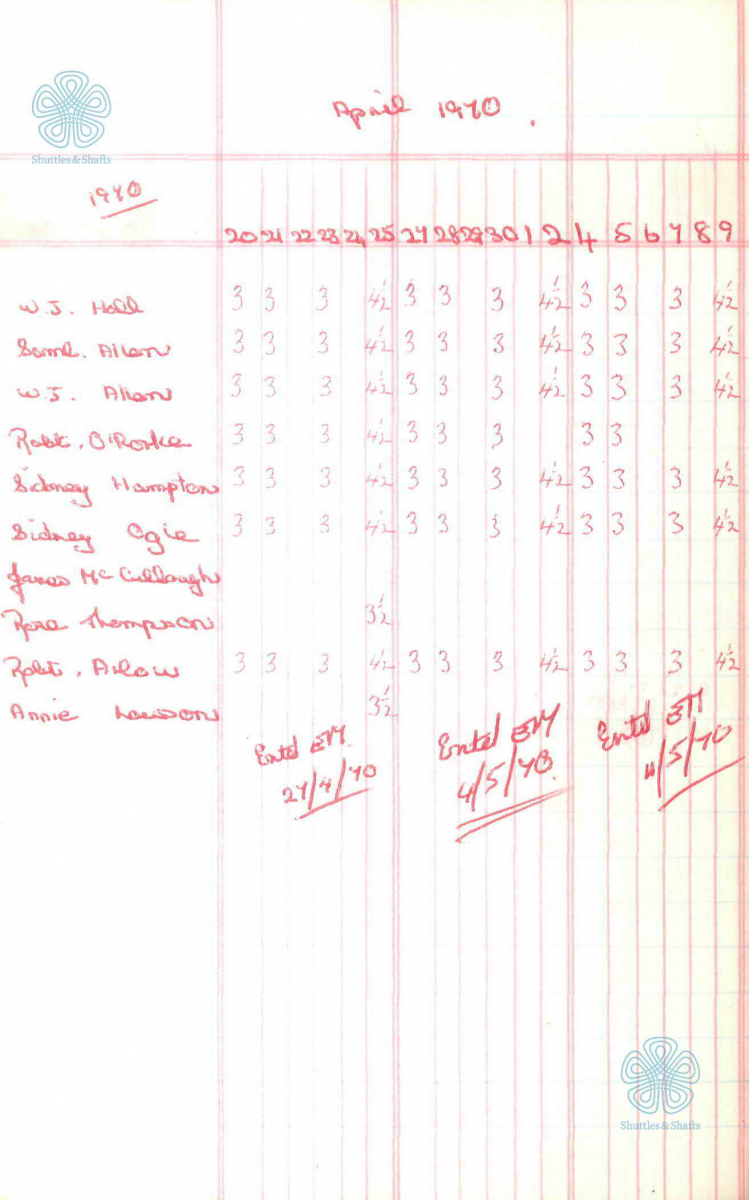 Shuttles & Shafts
April 1970.
1970
20 21 22 23 24 25 27 28 29 30 1 2 4 5 6 7 8 9
W.J. Hall 3 3 3 4½ 3 3 3 4½ 3 3 3 4½
Saml. Allen 3 3 3 4½ 3 3 3 4½ 3 3 3 4½
W.J. Allen 3 3 3 4½ 3 3 3 4½ 3 3 3 4½
Robt. O'Rorke 3 3 3 4½ 3 3 3 3 3
Sidney Hampton 3 3 3 4½ 3 3 3 4½ 3 3 3 4½
Sidney 3 3 3 4½ 3 3 3 4½ 3 3 3 4½
James McCullough
Rose Thompson 3½
Robt. 3 3 3 4½ 3 3 3 4½ 3 3 3 4½
Annie Lawson 3½
Entd EM Entd EM Entd EM
27/4/70 4/5/70 11/5/70
Shuttles & Shafts